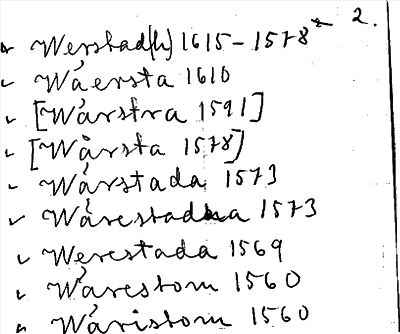 2.
Werstad(h) 1615-1578
Wäersta 1610
[Wärstra 1591]
[Wårsta 1578]
Wärstada 1573
Wärestadha 1573
Werestada 1569
Wärestom 1560
Wäristom 1560